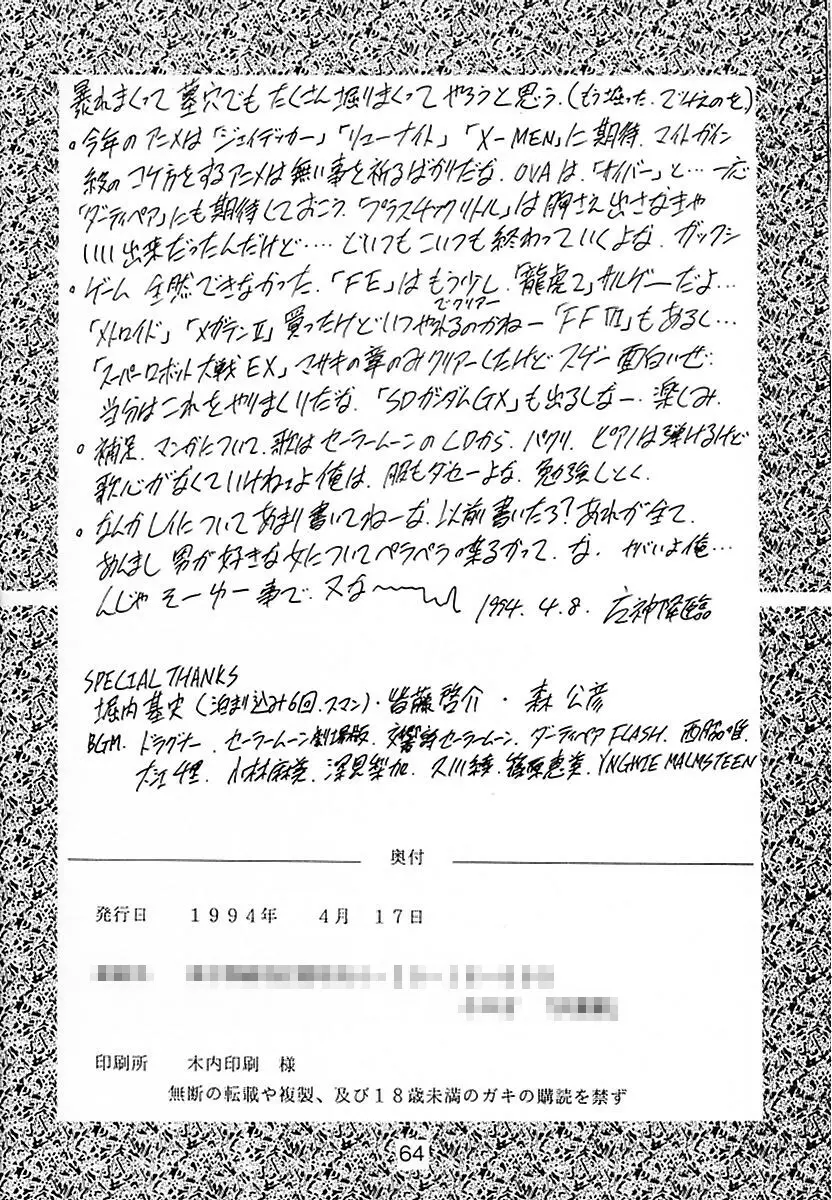 暴れまくって墓穴でもたくさん掘りまくってやろうと思う。(もう掘った。でけえのを)
・今年のアニメは「ジェイデッカー」「リューナイト」「X-MEN」に期待。マイトガイン
級のコケ方をするアニメは無い事を祈るばかりだな。OVAは、「ガイバー」と…一応
「ダーティペア」にも期待しておこう。「プラスチックリトル」は胸さえ出さなきゃ
いい出来だったんだけど…‥ どいつもこいつも終わっていくよな、ガックシ
・ゲーム 全然できなかった。「FE」はもう少しでクリアー。「龍虎2」サルゲーだよ…
「メトロイド」「メガテンⅡ」買ったけどいつやれるのかねー「FFⅥ」もあるし…
「スーパーロボット大戦EX」マサキの章のみクリアーしたけどスゲー面白いぜ。
当分はこれをやりまくりだな。「SDガンダムGX」も出るしなー。楽しみ。
・補足。マンガについて。歌はセーラームーンのLDから、パクリ。ピアノは弾けるけど
歌心がなくていけねェよ俺は。服もダセーよな。勉強しとく。
・なんかレイについてあまり書いてねーな。以前書いたろ?あれが全て。
あんまし男が好きな女についてペラペラ喋るかって。な。ヤバいよ俺…
んじゃ そーゆー事で。又な〜
1994.4.8. 神降臨
SPECIAL THANKS
堀内基史(泊まり込み6回。スマン)・皆藤啓介・森公彦
BGM. ドラグナー、セーラームーン劇場版、交響詩セーラームーン、ダーティペアFLASH、西脇唯、
大江千里、小林麻美、深見梨加、久川綾、篠原恵美、YNGWIE MALMSTEEN
奥付
発行日 1994年 4月 17日
印刷所 木内印刷 様
無断の転載や複製、及び18歳未満のガキの購読を禁ず
64